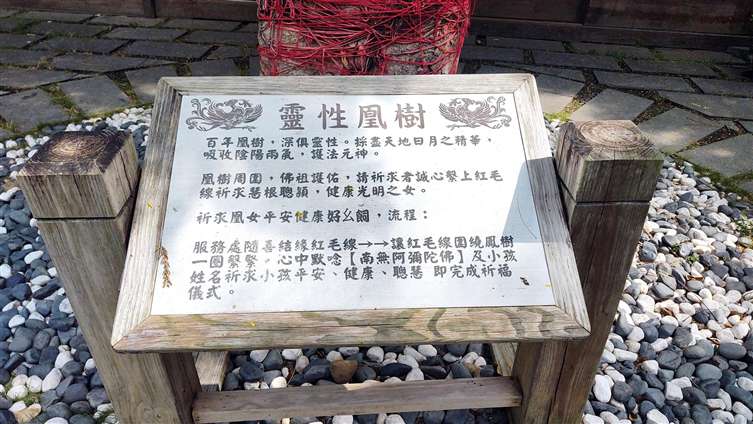 靈性凰樹
百年凰樹，深俱靈性。採盡天地日月之精華，
吸收陰陽兩氣，護法元神。
凰樹周圍，佛祖護佑，請祈求者誠心繫上紅毛
線祈求慧根聰穎，健康光明之女。
祈求凰女平安健康好幺飼，流程：
服務處隨喜結緣紅毛線→→讓紅毛線圍繞鳳樹
一圈繫緊。心中默唸【南無阿彌陀佛】及小孩
姓名祈求小孩平安、健康、聰慧 即完成祈福
儀式。